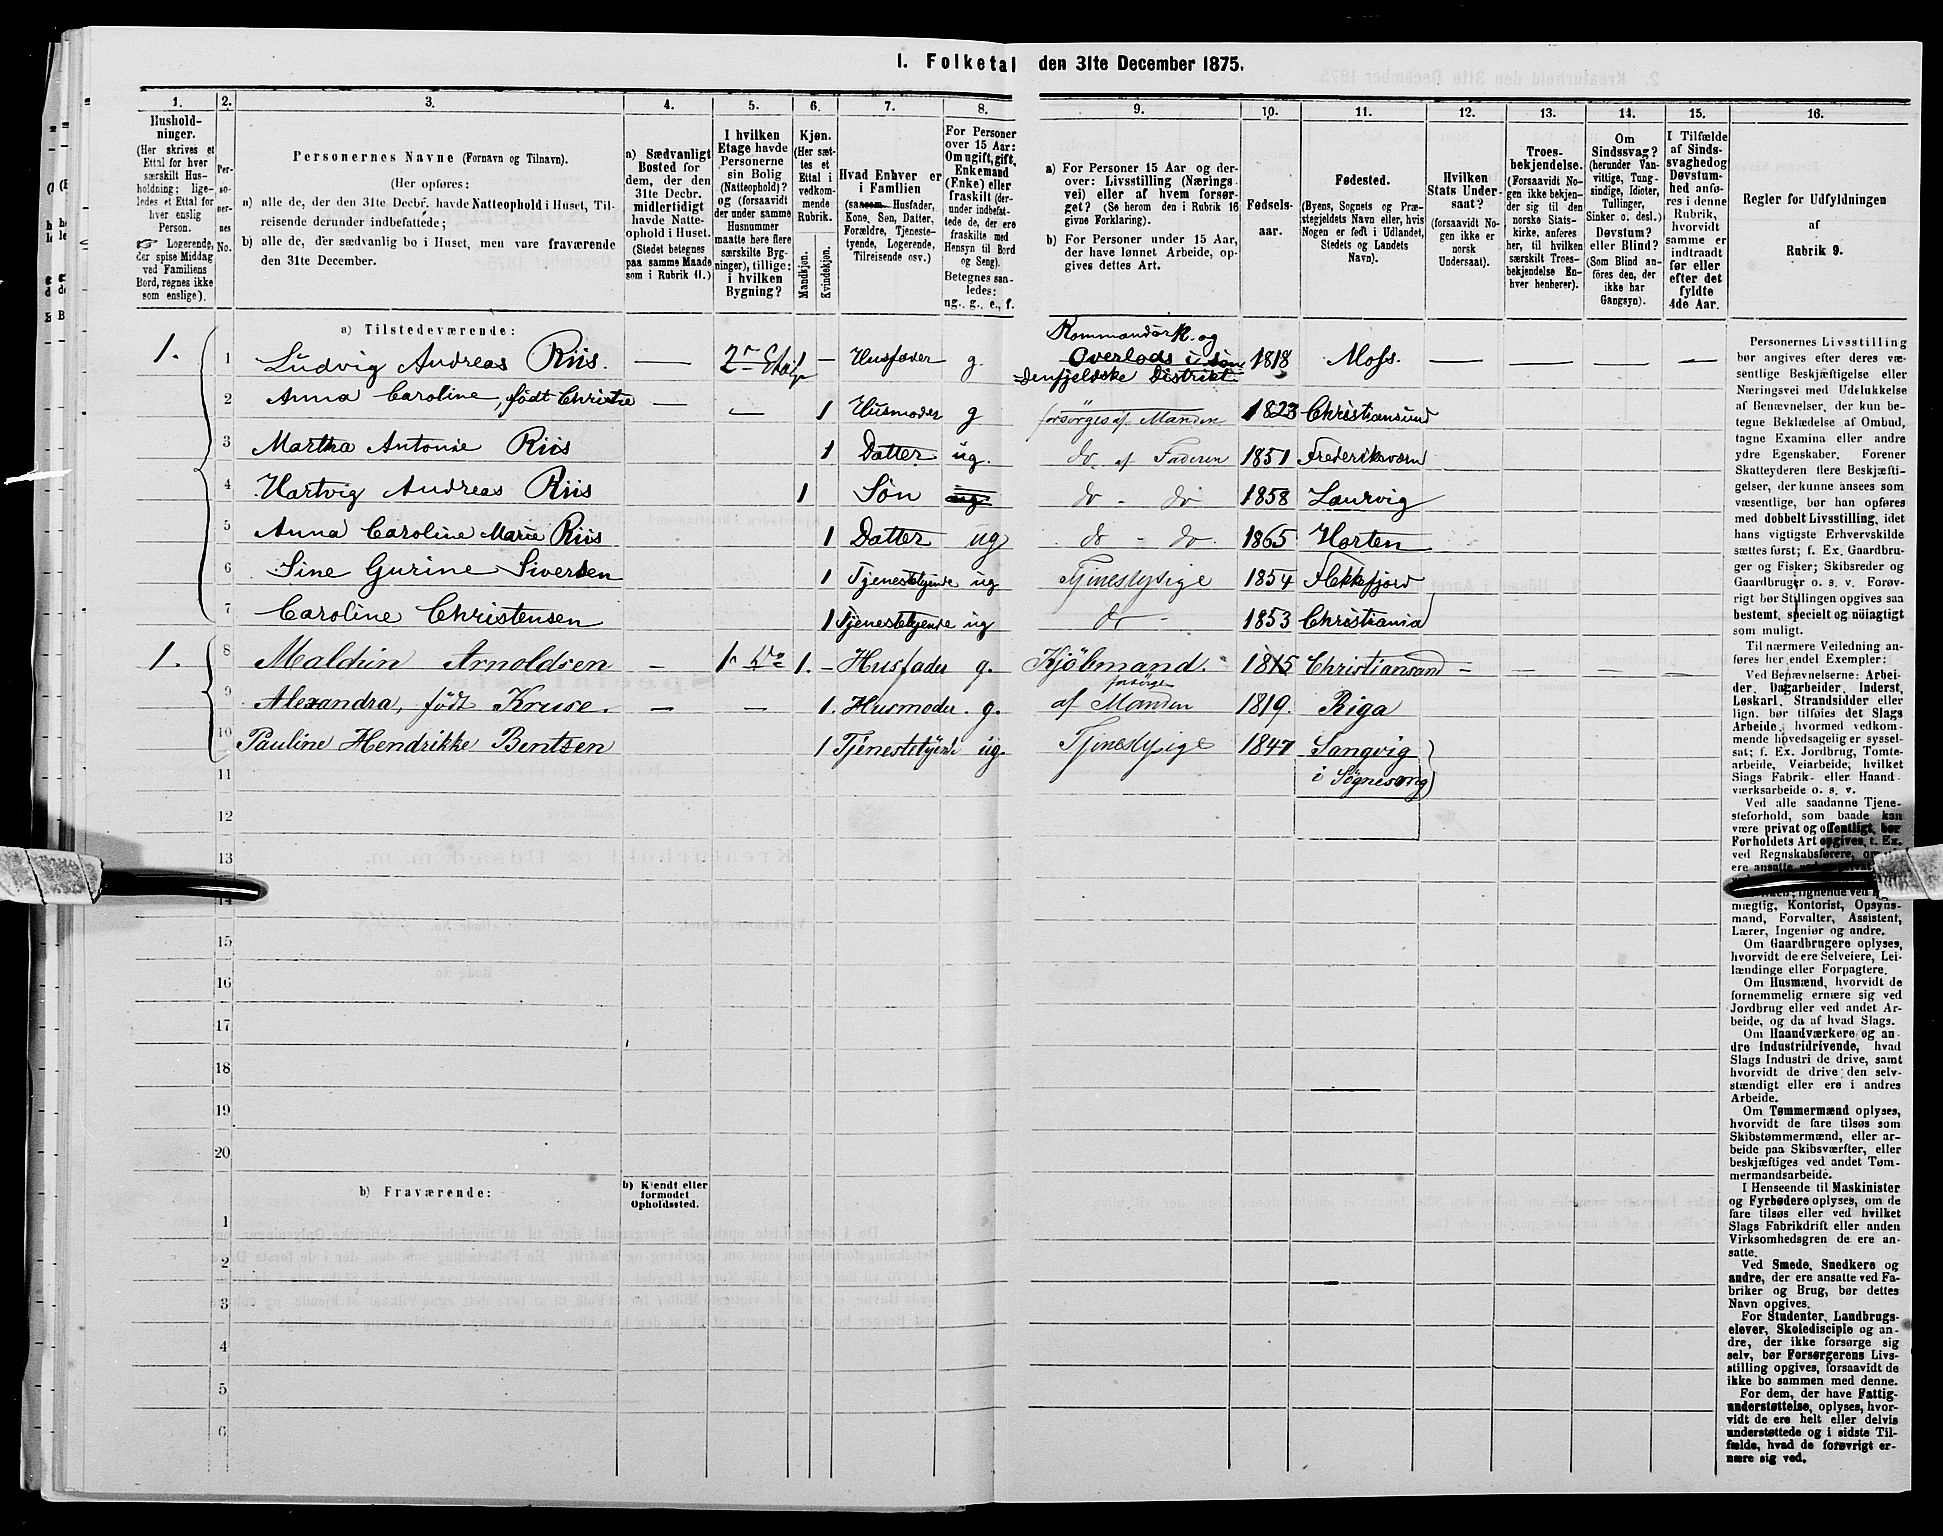 1. Folketal den 31te December 1875.
1. 2. 3. 4. 5. 6. 7. 8. 9. 10. 11. 12. 13. 14. 15. 16.
Hushold-
ninger.
(Her skrives et
Ettal for hver
særskilt Hus-
holdning; lige-
ledes et Ettal for
hver enslig
Person.
☞ Logerende,
der spise Middag
ved Familiens
Bord, regnes ikke
som enslige).
Per-
so-
ner-
nes
No.
Personernes Navne (Fornavn og Tilnavn).
(Her opføres:
a) alle de, der den 31te Decbr. havde Natteophold i Huset, Til-
reisende derunder indbefattede;
b) alle de, der sædvanlig bo i Huset, men vare fraværende
den 31te December.
a) Sædvanligt
Bosted for
dem, der den
31te Decbr.
midlertidigt
havde Natte-
ophold i Huset.
(Stedet betegnes
paa samme Maade
som i Rubrik 11.)
I hvilken
Etage havde
Personerne
sin Bolig
(Natteophold)?
og (forsaavidt
der under samme
Husnummer
maatte høre flere
særskilte Byg-
ninger), tillige:
i hvilken
Bygning?
Kjøn.
(Her sæt-
tes et
Ettal i
vedkom-
mende
Rubrik.
Mandkjøn.
Kvindekjøn.
Hvad Enhver er
i Familien
(saasom Husfader,
Kone, Søn, Datter,
Forældre, Tjeneste-
tyende, Logerende,
Tilreisende osv.)
For Personer
over 15 Aar:
Om ugift, gift,
Enkemand
(Enke) eller
fraskilt (der-
under indbefat-
tede de, der ere
fraskilte med
Hensyn til Bord
og Seng).
Betegnes saa-
ledes:
ug., g., e., f.
a) For Personer 15 Aar og der-
over: Livsstilling (Nærings-
vei) eller af hvem forsør-
get? (Se herom den i Rubrik 16
givne Forklaring).
b) For Personer under 15 Aar,
der have lønnet Arbeide, op-
gives dettes Art.
Fødsels-
aar.
Fødested.
(Byens, Sognets og Præ-
stegjeldets Navn eller, hvis
Nogen er født i Udlandet,
Stedets og Landets
Navn).
Hvilken
Stats Under-
saat?
(forsaavidt No-
gen ikke er
norsk
Undersaat).
Troes-
bekjendelse.
(Forsaavidt No-
gen ikke bekjen-
der sig til den
norske Stats-
kirke, anføres
her, til hvilken
særskilt Troes-
bekjendelse En-
hver henhører).
Om
Sindssvag?
(herunder Van-
vittige, Tung-
sindige, Idioter,
Tullinger,
Sinker o. desl.)
Døvstum?
eller Blind?
(Som Blind an-
føres den, der
ikke har
Gangsyn).
I Tilfælde
af Sinds-
svaghed og
Døvstum-
hed anfø-
res i denne
Rubrik,
hvorvidt
samme er
indtraadt
før eller
efter det
fyldte
4de Aar.
Regler for Udfyldningen
af
Rubrik 9.
a) Tilstedeværende:
1. 1 Ludvig Andreas Riis. — 2n Etage 1 — Husfader g. Kommandørk. og Overlods i søndenfjeldske Distrikt 1818 Moss. — — — —
2 Anna Caroline, født Christie — — 1 Husmoder g forsørges af Manden 1823 Christiansund
3 Martha Antonie Riis 1 Datter ug. do. af Faderen 1851 Frederiksværn
4 Hartvig Andreas Riis 1 Søn ug do - do 1858 Laurvig
5 Anna Caroline Marie Riis 1 Datter ug do - do. 1865 Horten
6 Sine Gurine Siversen 1 Tjenestetyende ug Tjenestepige 1854 Flekkefjord
7 Caroline Christensen 1 Tjenestetyende ug do - 1853 Christiania
1. 8 Malchin Arnoldsen — 1. Do 1. — Husfader g. Kjøbmand. 1815 Christiansand
9 Alexandra, født Kruse. — — 1. Husmoder. g. forsørges af Manden 1819. Riga
10 Pauline Hendrikke Bentsen 1 Tjenestetyende ug. Tjenestepige 1847 Langvig
11 i Søgnesong
12
13
14
15
16
17
18
19
20
b) Fraværende:
b) Kjendt eller
formodet
Opholdssted.
1
2
3
4
5
6
Personernes Livsstilling
bør angives efter deres væ-
sentlige Beskjæftigelse eller
Næringsvei med Udelukkelse
af Benævnelser, der kun be-
tegne Beklædelse af Ombud,
tagne Examina eller andre
ydre Egenskaber. Forener
Skatteyderen flere Beskjæfti-
gelser, der kunne ansees som
væsentlige, bør han opføres
med dobbelt Livsstilling, idet
hans vigtigste Erhvervskilde
sættes først; f. Ex. Gaardbru-
ger og Fisker; Skibsreder og
Gaardbruger o. s. v. Forøv-
rigt bør Stillingen opgives saa
bestemt, specielt og nøiagtigt
som muligt.
Til nærmere Veiledning an-
føres her endel Exempler:
Ved Benævnelserne: Arbei-
der, Dagarbeider, Inderst,
Løskarl, Strandsidder eller
lign. bør tilføies det Slags
Arbeide, hvormed vedkom-
mende hovedsagelig er syssel-
sat; f. Ex. Jordbrug, Tomte-
arbeide, Veiarbeide, hvilket
Slags Fabrik- eller Haand-
værksarbeide o. s. v.
Ved alle saadanne Tjene-
steforhold, som baade kan
være privat og offentligt, bør
Forholdets Art opgives, t. Ex.
ved Regnskabsførere,
mægtig, Kontorist, Opsyns-
mand, Forvalter, Assistent,
Lærer, Ingeniør og andre.
Om Gaardbrugere oplyses,
hvorvidt de ere Selveiere, Lei-
lændinge eller Forpagtere.
Om Husmænd, hvorvidt de
fornemmelig ernære sig ved
Jordbrug eller ved andet Ar-
beide, og da af hvad Slags.
Om Haandværkere og an-
dre Industridrivende, hvad
Slags Industri de drive, samt
hvorvidt de drive den selv-
stændigt eller ere i andres
Arbeide.
Om Tømmermænd oplyses,
hvorvidt de fare tilsøs som
Skibstømmermænd, eller ar-
beide paa Skibsværfter, eller
beskjæftiges ved andet Tøm-
mermandsarbeide.
I Henseende til Maskinister
og Fyrbødere oplyses, om de
fare tilsøs eller ved hvilket
Slags Fabrikdrift eller anden
Virksomhedsgren de ere an-
satte.
Ved Smede, Snedkere og
andre, der ere ansatte ved Fa-
briker og Brug, bør dettes
Navn opgives.
For Studenter, Landbrugs-
elever, Skoledisciple og an-
dre, der ikke forsørge sig
selv, bør Forsørgerens Livs-
stilling opgives, forsaavidt de
ikke bo sammen med denne.
For dem, der have Fattig-
understøttelse, oplyses, hvor-
vidt de ere helt eller delvis
understøttede og i sidste Til-
fælde, hvad de forøvrigt er-
nære sig ved.